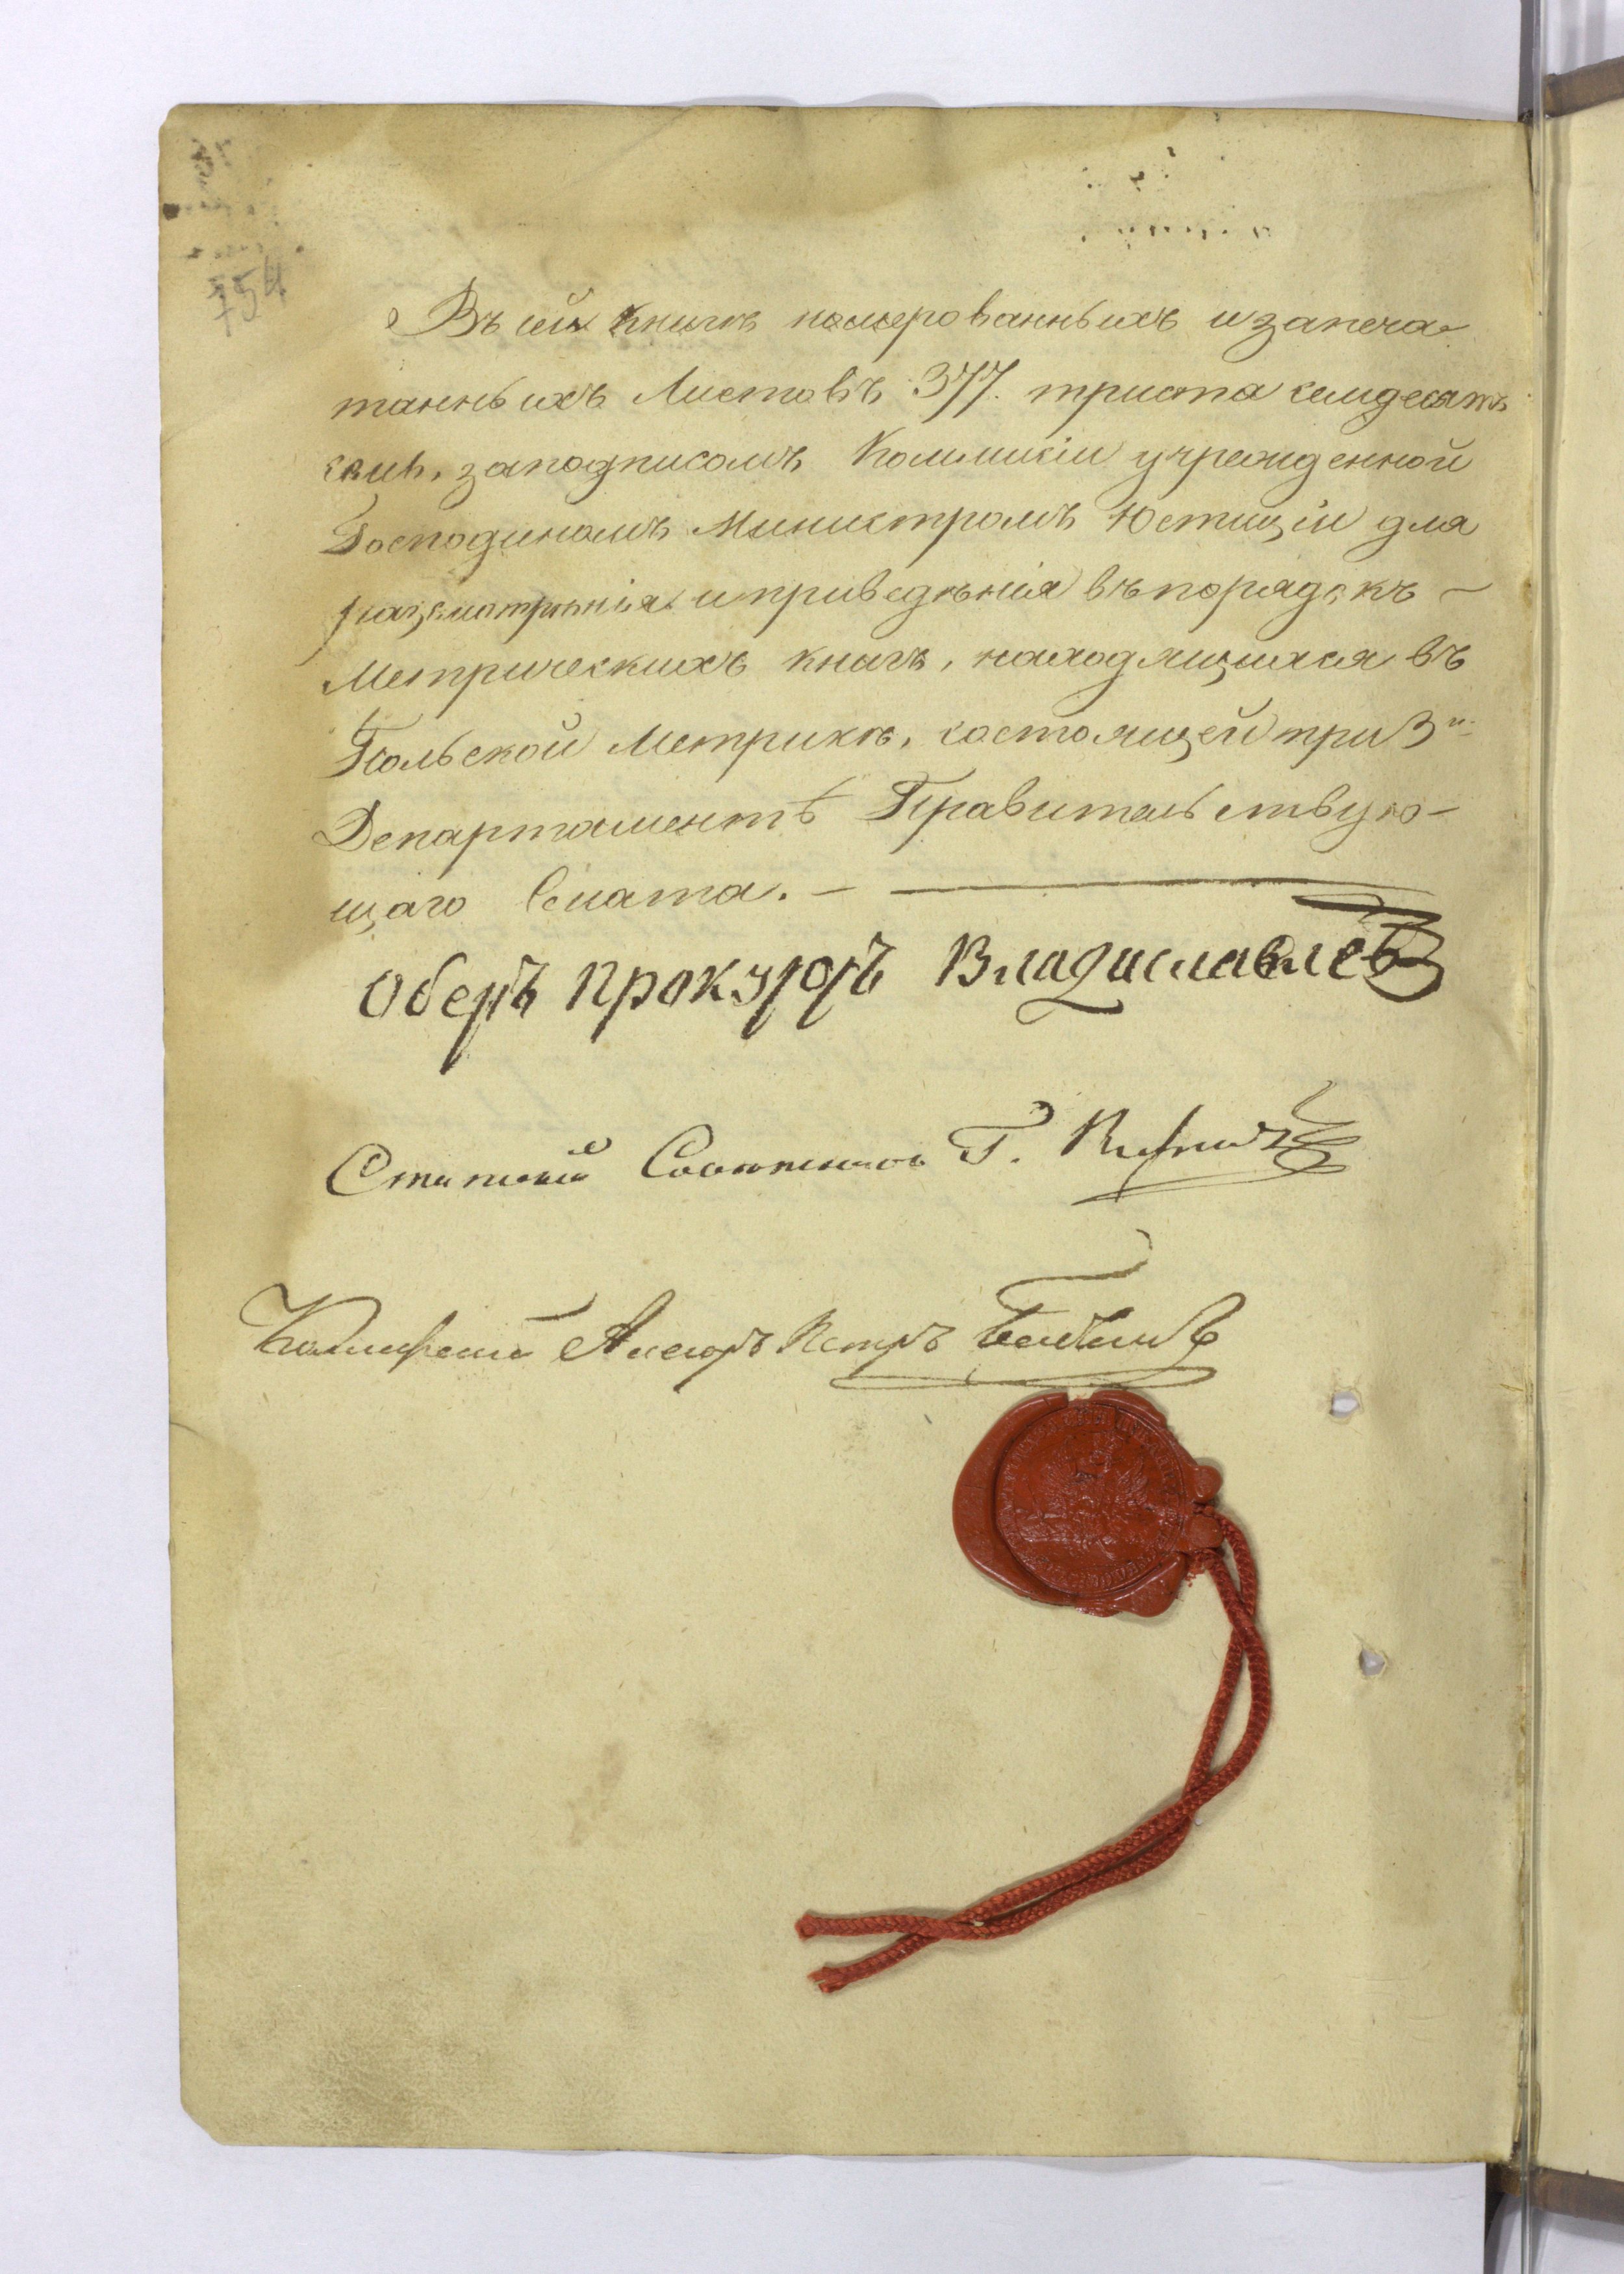 754
Въ сей книгѣ номерованныхъ и запеча
танныхъ Листовъ 377. триста семдесятъ
семь, заподписомъ Коммисіи учрежденной
Господиномъ Министромъ Юстиціи для
разсмотрѣнія и приведѣнія въ порядокъ –
Метрическихъ книгъ, находящихся въ
Польской Метрикѣ, состоящей при 3й
Департаментѣ Правительствую-
щаго Сената. –
Оберъ Прокуроръ Владиславлевъ
Статскій Совѣтникъ Г.
Коллежскій Асесоръ Петръ